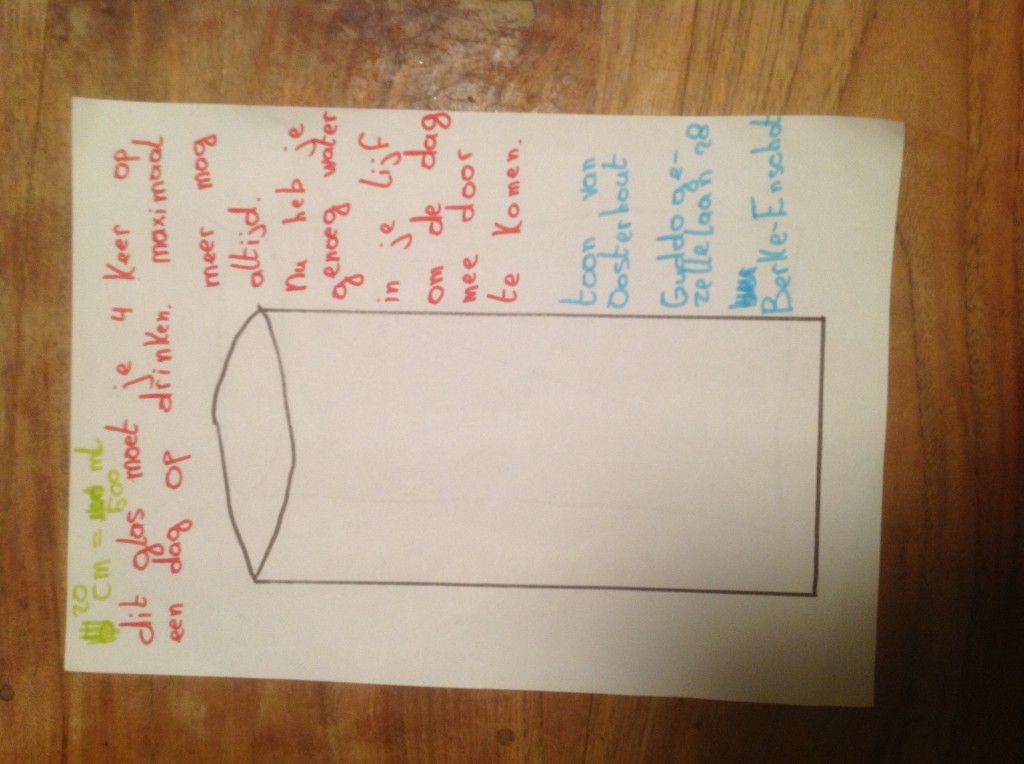 20
cm = 500 mL
dit glas moet je 4 keer op
een dag op drinken. maximaal
meer mog
altijd.
Nu heb je
genoeg water
in je lijf
om de dag
mee door
te komen.
toon van
Oosterhout
Guddo ge-
zellelaan 28
Berke-Enschot